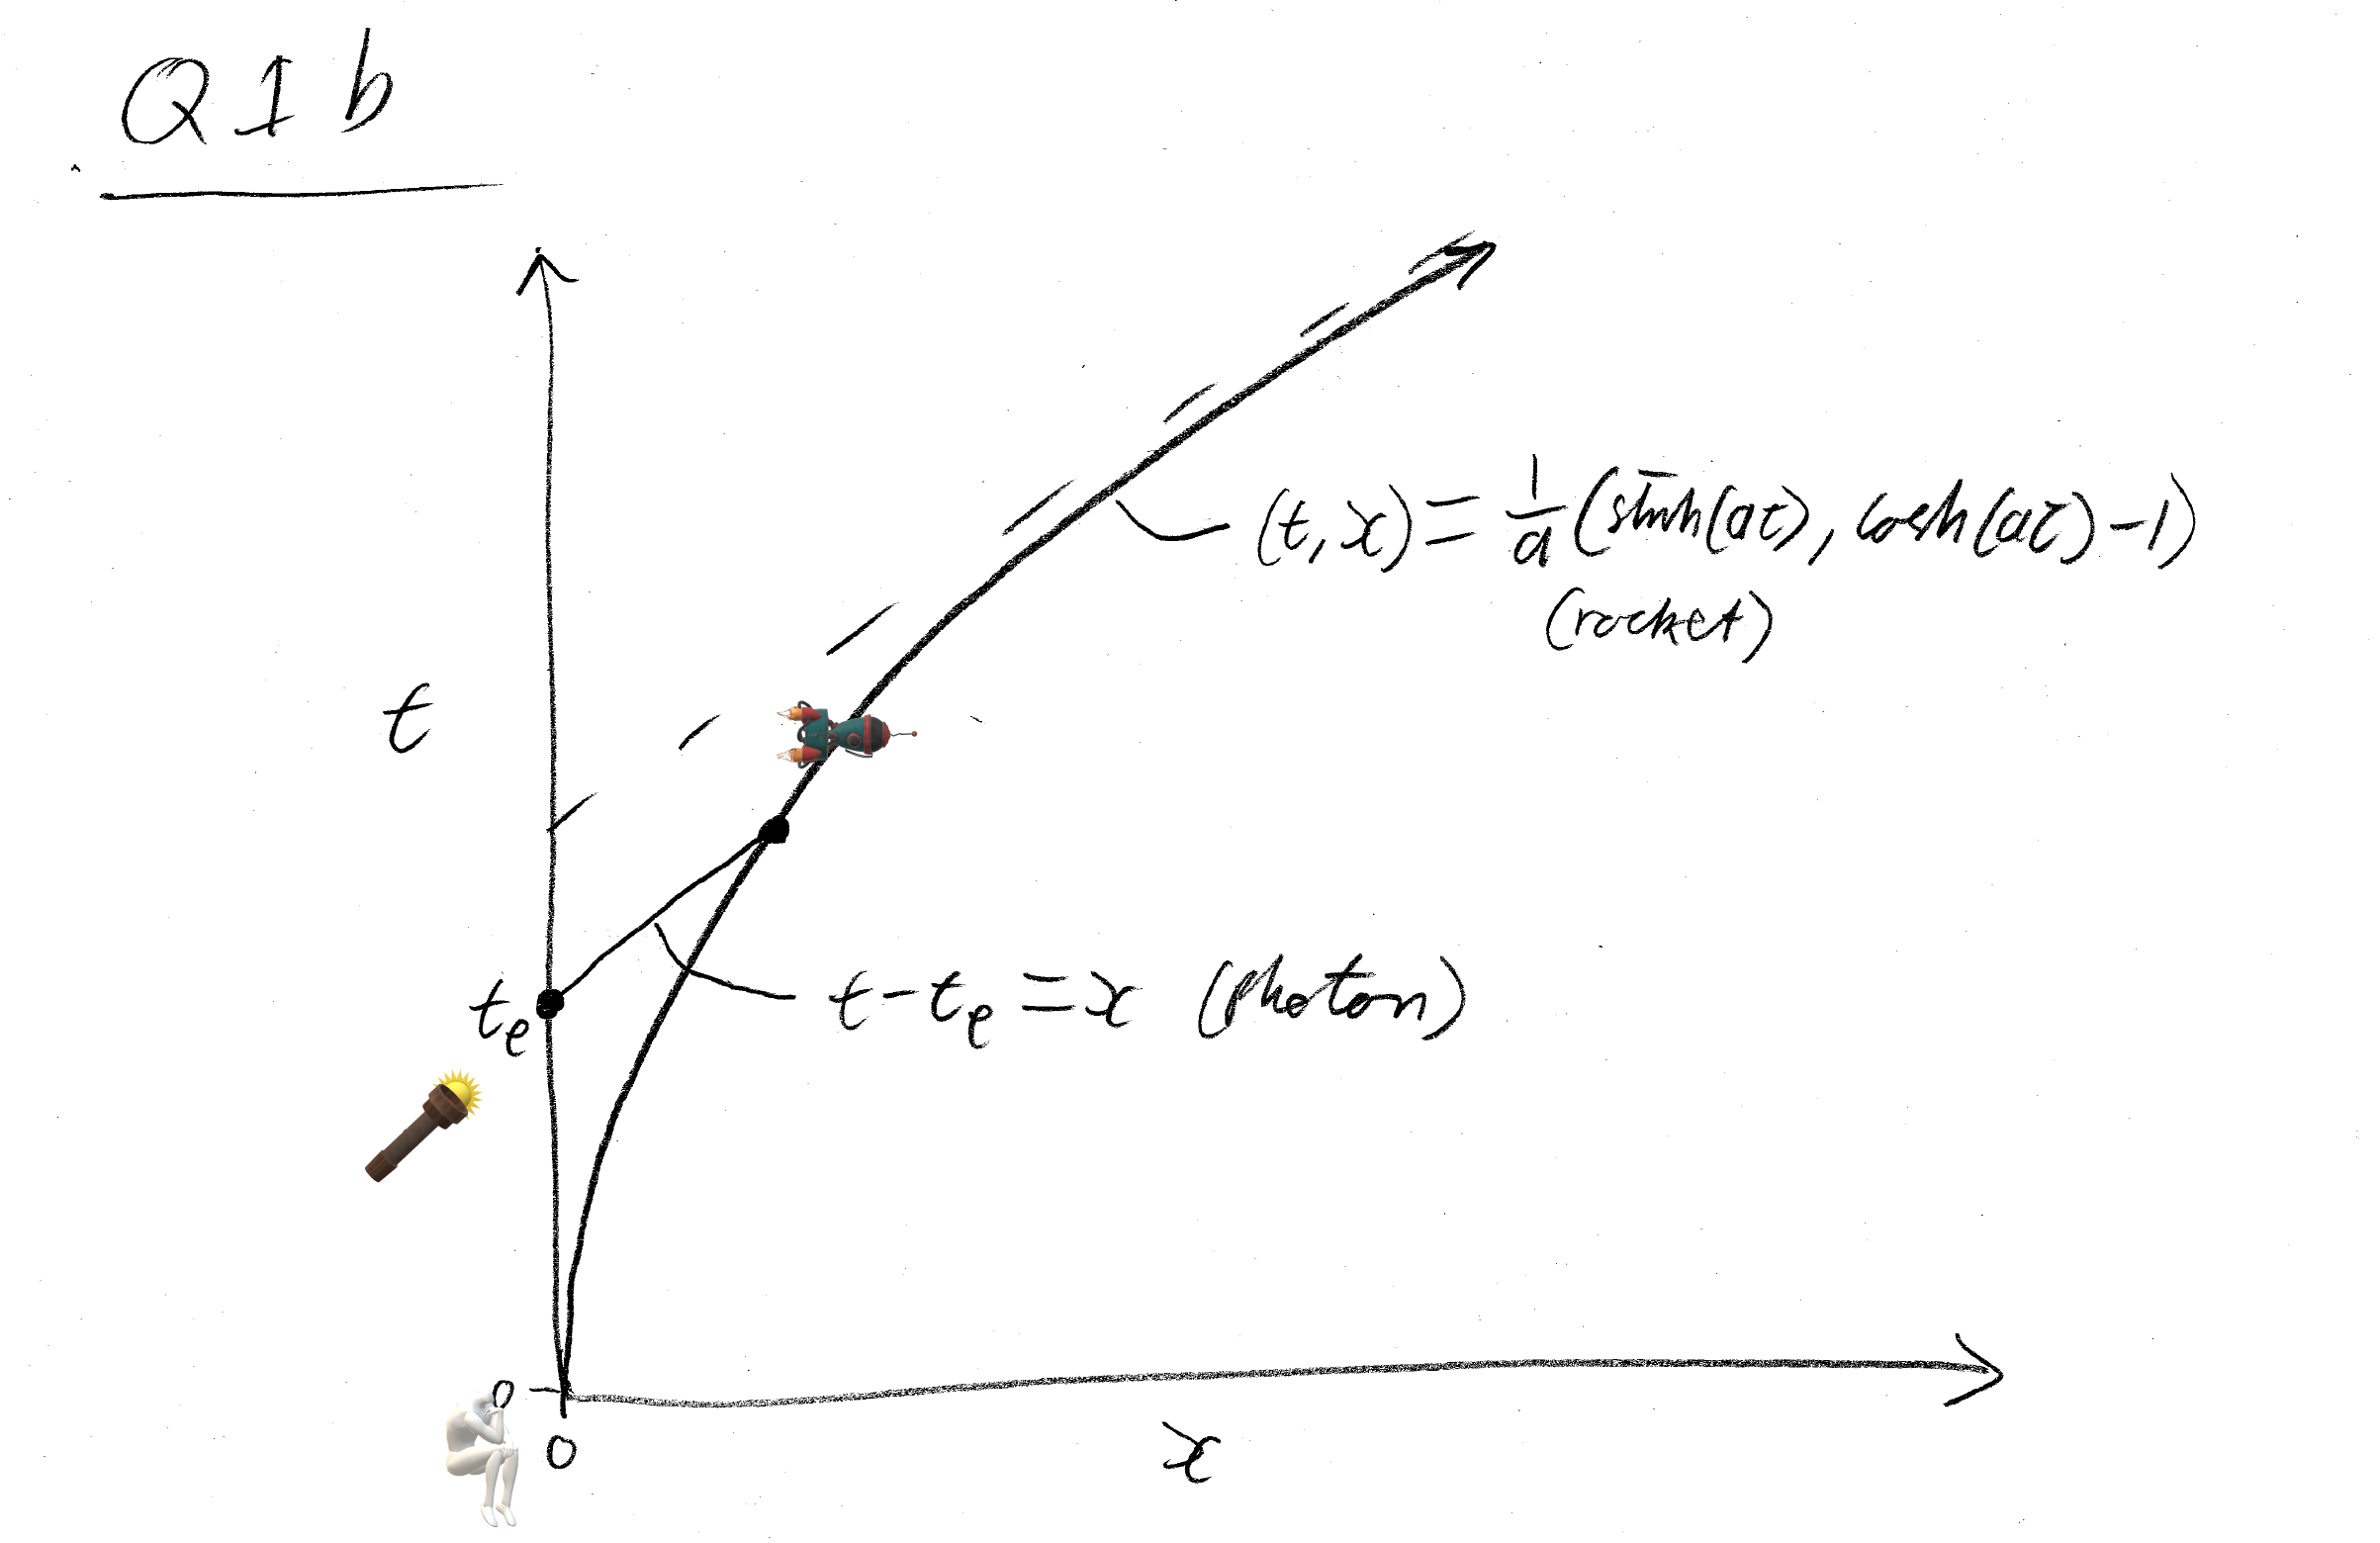 Q1b
t
(t, x) = 1/a (sinh(aτ), cosh(aτ) - 1)
(rocket)
t_e
t - t_e = x (photon)
0
0
x